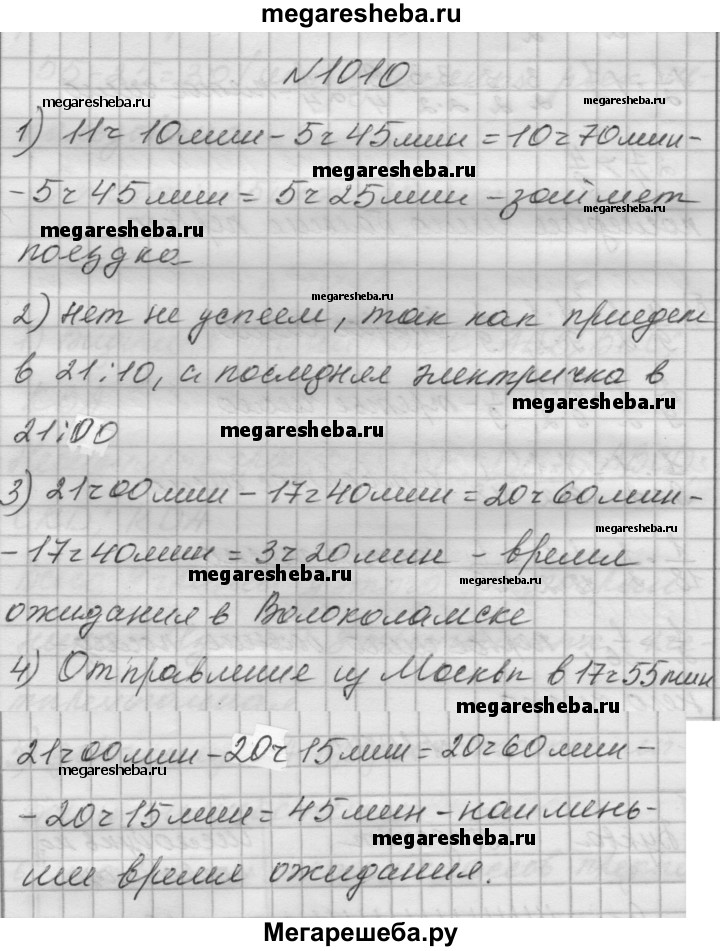 megaresheba.ru
№1010
megaresheba.ru
megaresheba.ru
1) 11ч 10мин - 5ч 45мин = 10ч 70мин -
megaresheba.ru
- 5ч 45мин = 5ч 25мин - займет
megaresheba.ru
megaresheba.ru
поездка
megaresheba.ru
2) нет не успеем, так как приедем
в 21:10, а последняя электричка в
megaresheba.ru
21:00
megaresheba.ru
3) 21ч 00мин - 17ч 40мин = 20ч 60мин -
megaresheba.ru
- 17ч 40мин = 3ч 20мин - время
megaresheba.ru
megaresheba.ru
ожидания в Волоколамске
4) Отправление из Москвы в 17ч 55мин
megaresheba.ru
21ч 00мин - 20ч 15мин = 20ч 60мин -
megaresheba.ru
- 20ч 15мин = 45мин - наимень-
megaresheba.ru
ши время ожидания.
Мегарешеба.ру